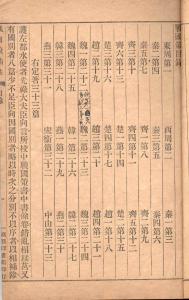 戰國策目錄
東周第一 西周第二 秦一第三
秦二第四 秦三第五 秦四第六
秦五第七 齊一第八 齊二第九
齊三第十 齊四第十一 齊五第十二
齊六第十三 楚一第十四 楚二第十五
楚三第十六 楚四第十七 趙一第十八
趙二第十九 趙三第二十 趙四第二十一
魏一第二十二 魏二第二十三 魏三第二十四
魏四第二十五 韓一第二十六 韓二第二十七
韓三第二十八 燕一第二十九 燕二第三十
燕三第三十一 宋衛第三十二 中山第三十三
右定著三十三篇
護左都水使者光祿大夫臣向言所校中戰國策書中書餘卷錯亂相糅莒又
有國別者八篇少不足臣向因國別者略以時次之分別不以序者以相補除